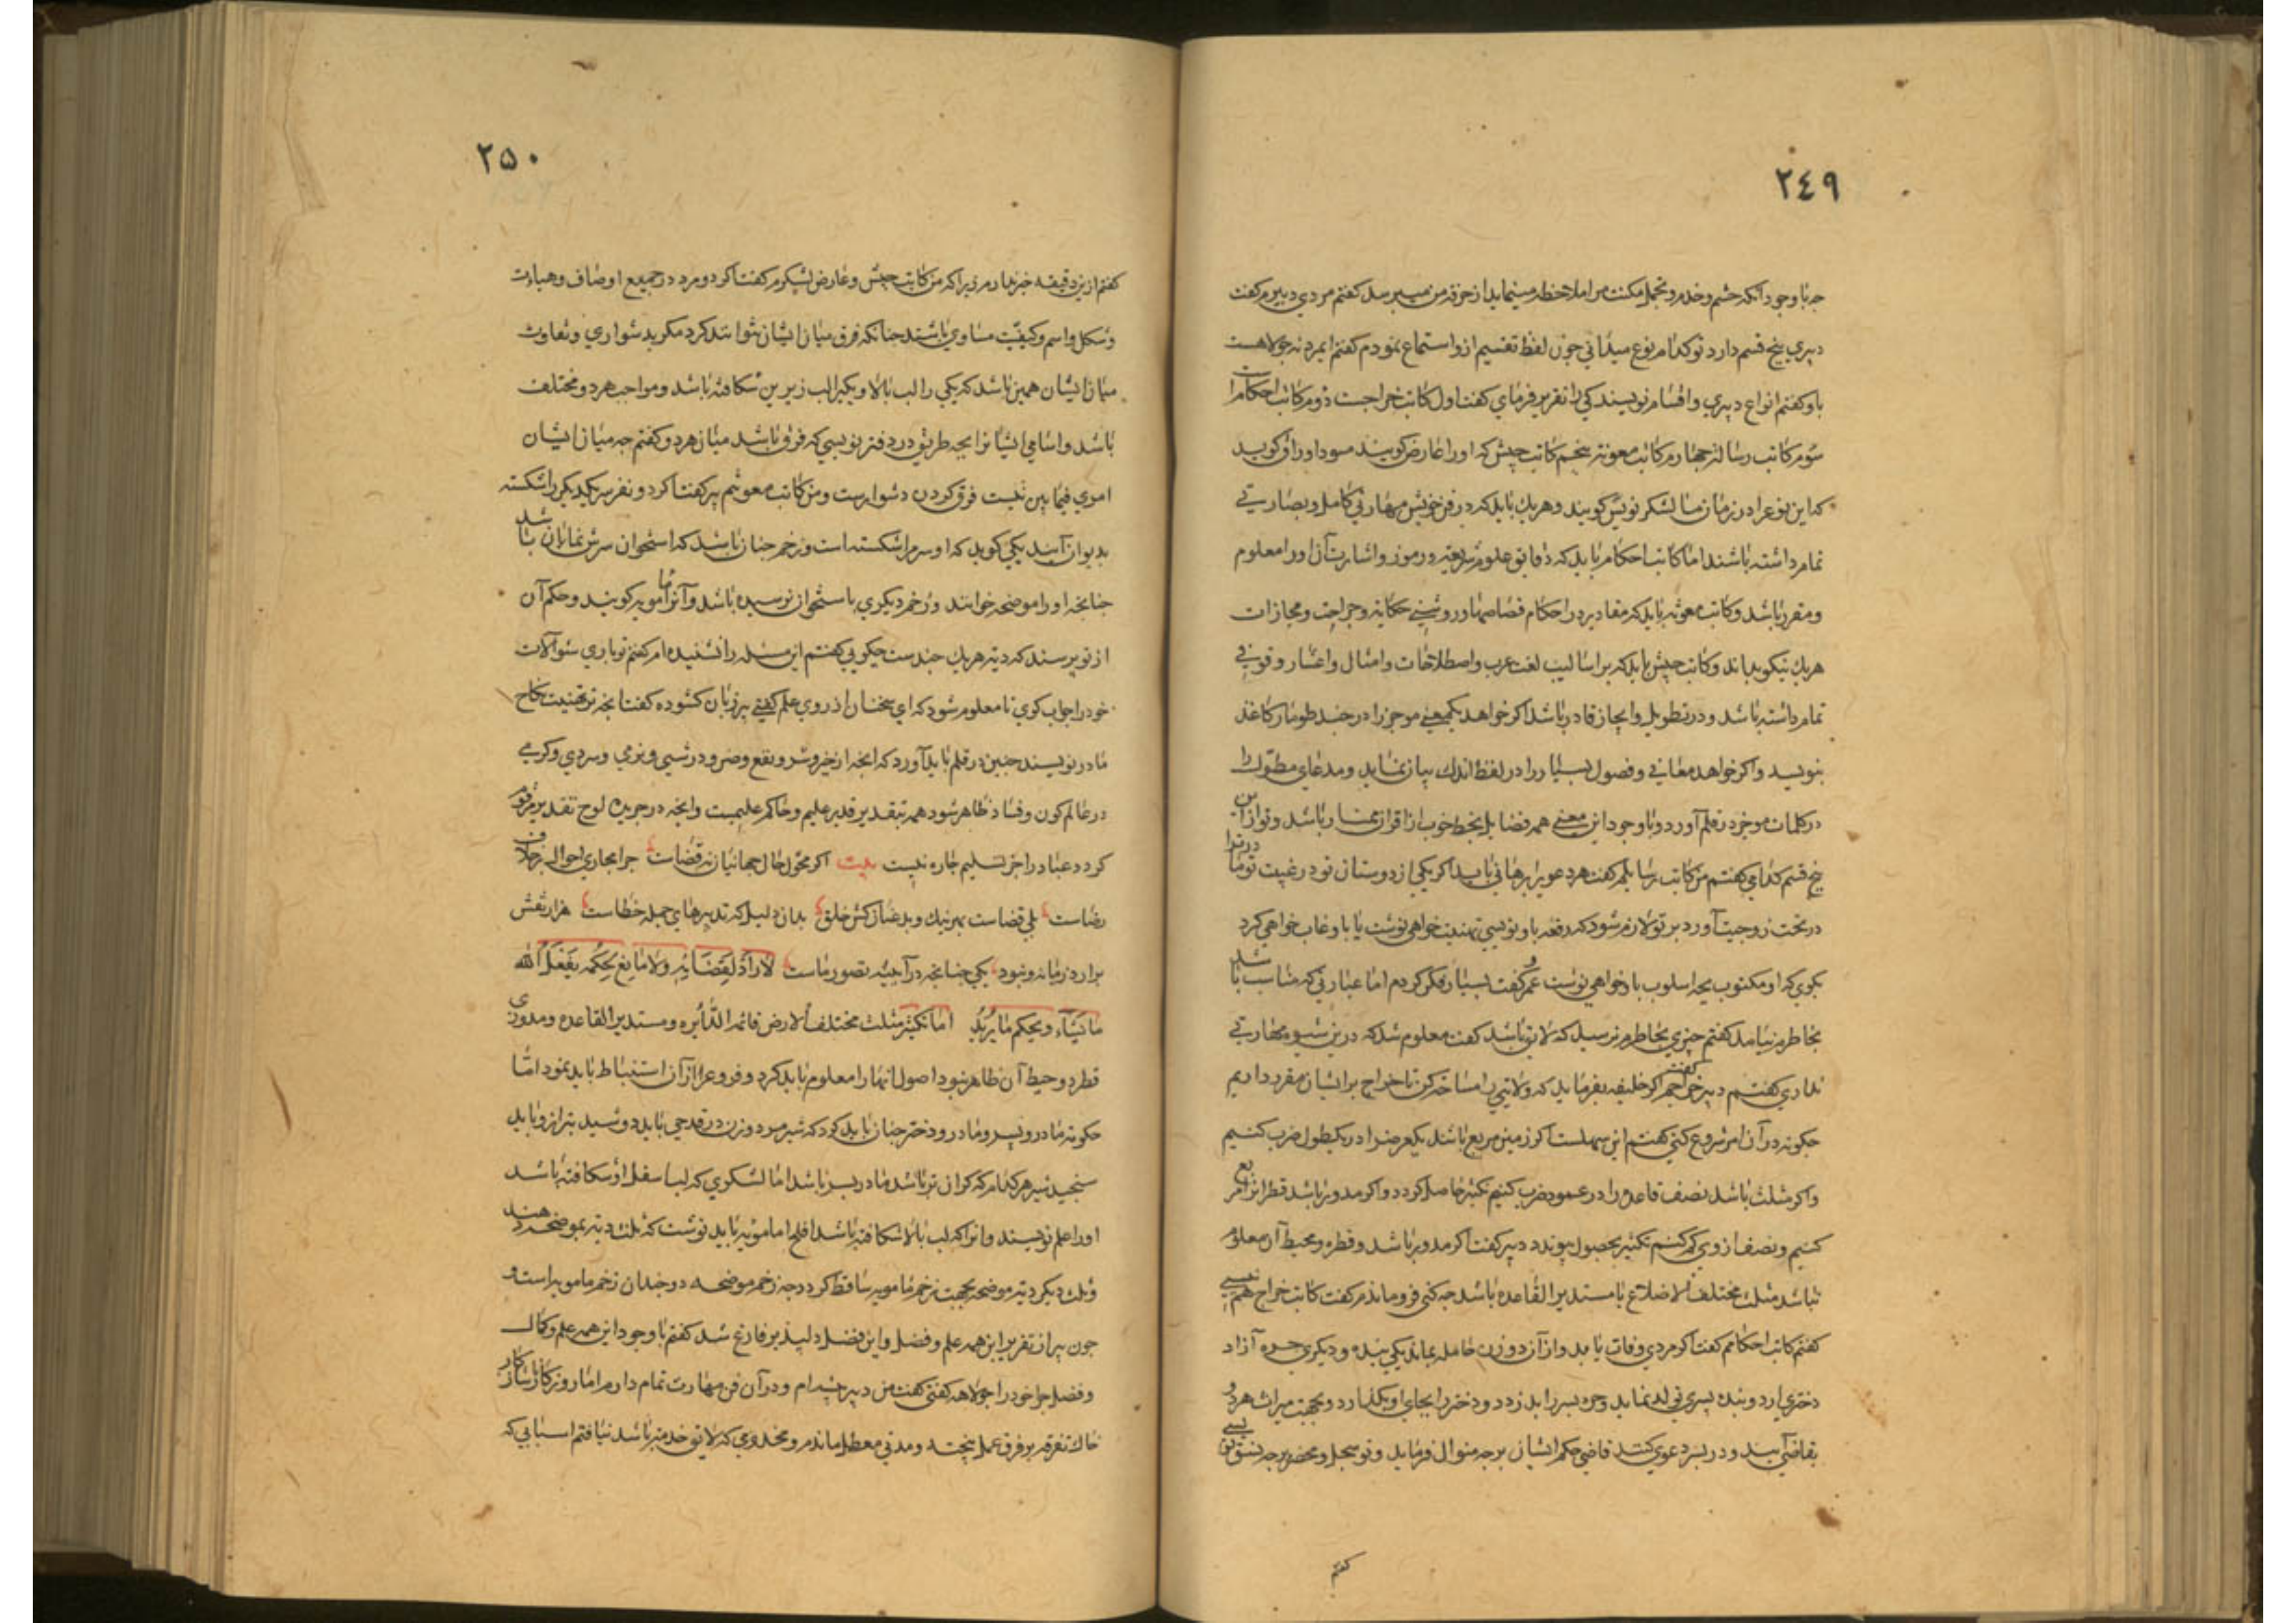 ٢٤٩
جه باوجود آنکه حشم وخدم وتجمل مکنت مرا ملاحظه مینماید از حرفه من میپرسد کفتم مردی دبیرم کفت
دبیری پنج قسم دارد تو کدام نوع میدانی جون لفظ تقسیم ازو استماع نمودم کفتم این مرد نه جولاهست
باو کفتم انواع دبیری واقسام نویسندکی را تقریر فرمای کفت اول کاتب خراجست دوم کاتب احکام
سوم کاتب رسائل جهارم کاتب معونه پنجم کاتب جیش که اورا عارض کویند
که این نوع را در زمان ما لشکر نویس کویند وهر یك باید که در فن خویش مهارتی کامل وبصارتی
تمام داشته باشند اما کاتب احکام باید که دقایق علوم شریعه ورموز واشارت آن اورا معلوم
ومقرر باشد وکاتب معونه باید که مقادیر در احکام قصاصها وجراحت ومجازات
هریك نیکو بداند وکاتب جیش باید که بر اسالیب لغت عرب واصطلاحات وامثال واشعار وقوفی
تمام داشته باشد ودر تطویل وایجاز قادر باشد اکر خواهد یکمعنی موجز را در جند طومار کاغذ
بنویسد واکر خواهد معانی وفصول بسیار را در لفظ اندك بیان نماید ومدعای مطول را
در کلمات موجز در قلم آورد وباوجود این معنی همه فضایل بخط خوب از اقران ممتاز باشد وتو از این
پنج قسم کدامی کفتم من کاتب رسایلم کفت هر دعوی را برهانی باید اکر یکی از دوستان تو در غیبت تو مادر ترا
در تحت زوجیت آورد بر تو لازم شود که رقعه باو نویسی تهنیت خواهی نوشت یا باو عتاب خواهی کرد
بکوی که او مکتوب بجه اسلوب باو خواهی نوشت عمرو کفت بسیار فکر کردم اما عبارتی که مناسب باشد
بخاطرم نیامد کفتم جیزی بخاطرم نرسید که لایق باشد کفت معلوم شد که درین شیوه مهارتی
نداری کفتم دبیر خراجم کفت اکر خلیفه بفرماید که ولایتی را مساحه کن تا خراج بر ایشان مقرر داریم
جکونه در آن امر شروع کنی کفتم این سهلست اکر زمین مربع باشد یکعرض را در یکطول ضرب کنیم
واکر مثلث باشد نصف قاعده را در عمود ضرب کنیم تکثیر حاصل کردد واکر مدور باشد قطر آنرا مربع
کنیم ونصف ازوی کم کنیم تکثیر بحصول پیوندد دبیر کفت اکر مدور باشد وقطر ومحیط آن معلوم
نباشد مثلث مختلف الاضلاع یا مستدیر القاعده باشد جه کنی فروماندم کفت کاتب خراج هم نیستی
کفتم کاتب احکامم کفت اکر مردی وفات یابد واز آن دو زن حامله بماند یکی بنده ودیکری حره آزاد
دختری آرد وبنده پسری تولد نماید وحره پسر را بدزدد ودختر را بجای او بکذارد وبجهت میراث هردو
بقاضی آیند ودر پسر دعوی کنند قاضی حکم ایشان برجه منوال فرماید وتو سجل ومحضر برجه نسق نویسی
کفتم
٢۵٠
کفتم ازین دقیقه خبر ندارم زیرا که من کاتب جیش وعارض لشکرم کفت اکر دو مرد در جمیع اوصاف وهیات
وشکل واسم وکیفیت مساوی باشند جنانکه فرق میان ایشان نتوانند کرد مکر بدشواری وتفاوت
میان ایشان همین باشد که یکی را لب بالا ویکی را لب زیرین شکافته باشد ومواجب هردو مختلف
باشد واسامی ایشانرا بجه طریق در دفتر نویسی که فرق باشد میان هردو کفتم جه میان ایشان
امری فیما بین نیست فرق کردن دشوارست ومن کاتب معونتم پیر کفت اکر دو نفر سر یکدیکر را شکسته
بدیوان آیند یکی کوید که او سرم را شکسته است وزخم جنان باشد که استخوان سرش نمایان باشد
جنانجه اورا موضحه خوانند وزخم دیکری باستخوان نرسیده باشد وآنرا مامویه کویند وحکم آن
از تو پرسند که دیته هریك جندست جکویی کفتم این مسله را نشنیده ام کفتم تو باری سوآلات
خود را جواب کوی تا معلوم شود که ای سخنان از روی علم کفتی پیر زبان کشوده کفت آنجه تو تهنیت نکاح
مادر نویسند جنین در قلم باید آورد که انجه از خیر وشر ونفع وضر ودرشتی ونرمی وسردی وکرمی
در عالم کون وفساد ظاهر شود همه بتقدیر قدیر علیم وحاکم علیمست وانجه در جریده لوح تقدیر مرقوم
کردد عباد را جز تسلیم جاره نیست بیت اکر محول حال جهانیان نه قضاست جرا مجاری احوال برخلاف
رضاست بلی قضاست بهر نیك وبد عنان کش خلق بدان دلیل که تدبیرهای جمله خطاست هزار نقش
برآرد زمانه ونبود یکی جنانجه در آیینه تصور ماست لاراد لقضایه ولا مانع لحکمه یفعل الله
ما یشاء ویحکم ما یرید اما تکثیر مثلث مختلف الارض قائمه الدائره ومستدیر القاعده ومدوری
قطر ومحیط آن ظاهر نبود اصول آنها را معلوم باید کرد وفروع را از آن استنباط باید نمود اما
حکومه مادر وپسر ومادر ودختر جنان باید کرد که شیر هر دو زن در قدحی باید دوشید بترازو باید
سنجید شیر هر کدام که کران تر باشد مادر پسر باشد اما لشکری که لب اسفل او شکافته باشد
اورا علم نویسند وانرا که لب بالا شکافته باشد افلح اما مامویه باید نوشت که ثلث دیته بموضحه دهند
وثلث دیکر دیته موضحه بجهت زخم مامویه ساقط کردد جه زخم موضحه دوجندان زخم مامویه راست و
جون پیر از تقریر این همه علم وفضل واین فضل دلپذیر فارغ شد کفتم باوجود این همه علم وکمال
وفضل جرا خود را جولاهه کفتی کفت من دبیر جیش ام ودر آن فن مهارت تمام دارم اما روزکار ناسازکار
خاك تفرقه بر فرق عمل بیخته ومدتی معطل ماندم ومخدومی که لایق خدمتم باشد نیافتم اسبابی که